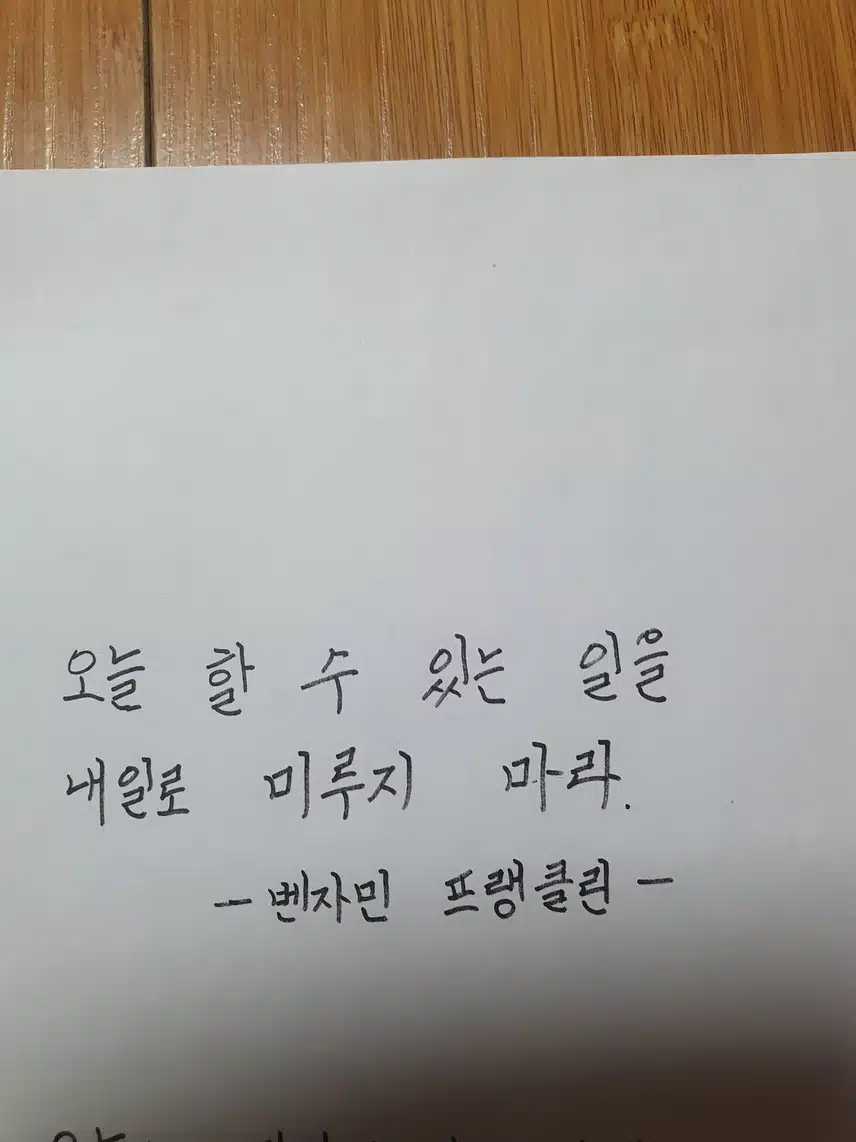 오늘 할 수 있는 일을
내일로 미루지 마라.
- 벤자민 프랭클린 -